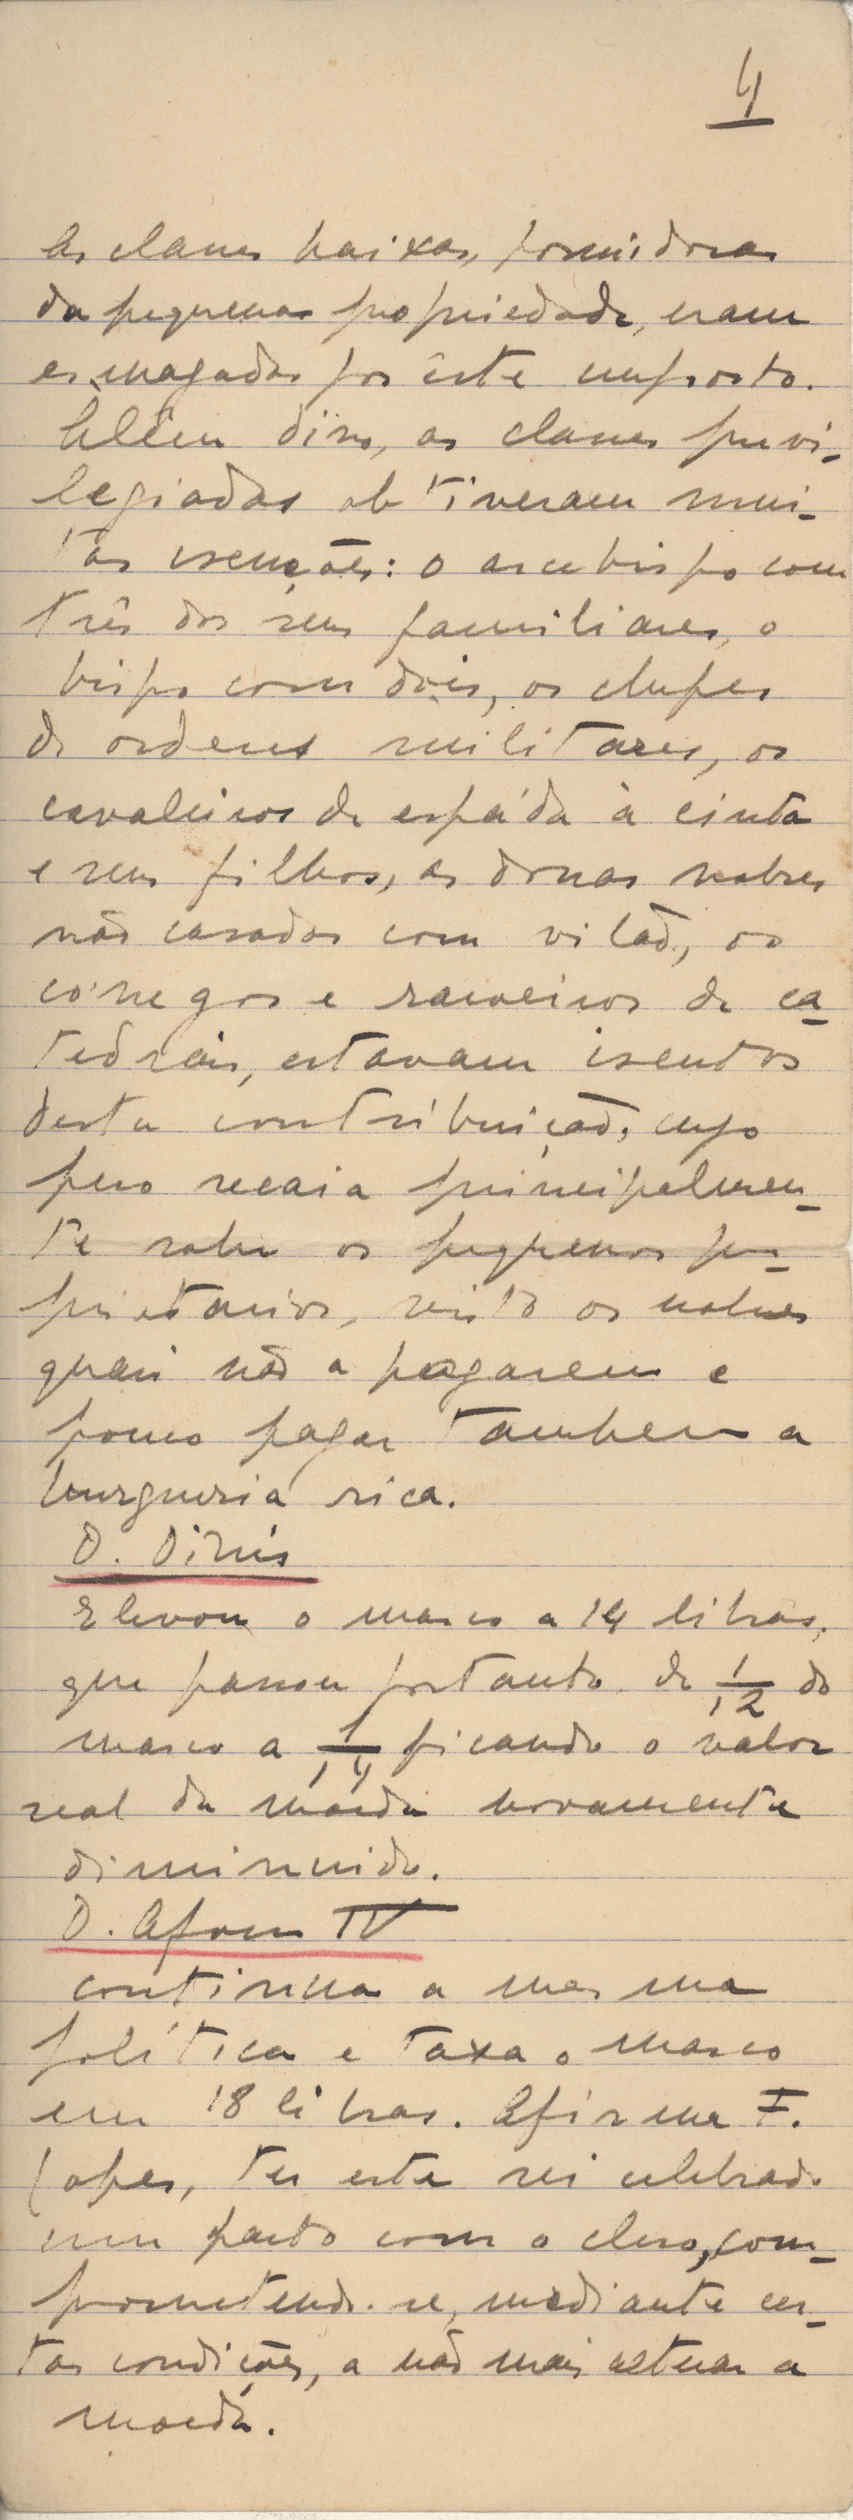 4
As classes baixas, possuidoras
da pequena propriedade, eram
esmagadas por êste imposto.
Além disso, as classes privi-
legiadas obtiveram mui-
tas isenções: o arcebispo com
três dos seus familiares, o
bispo com dois, os chefes
de ordens militares, os
cavaleiros de espáda à cinta
e seus filhos, as donas nobres
não casadas com vilão, os
cónegos e raçoeiros de ca-
tedrais, estavam isentos
desta contribuição, cujo
peso recaia principalmen-
te sobre os pequenos pro-
prietarios, visto os nobres
quasi não a pagarem e
pouco pagar tambem a
burguesia rica.
D. Dinis
Elevou o marco a 14 libras,
que passou portanto de 1/12 do
marco a 1/14 ficando o valor
real da moeda novamente
diminuido.
D. Afonso IV
continua a mesma
política e taxa o marco
em 18 libras. Afirma F.
Lopes, ter este rei celebrado
um pacto com o clero, com-
prometendo-se, mediante cer-
tas condições, a não mais alterar a
moeda.